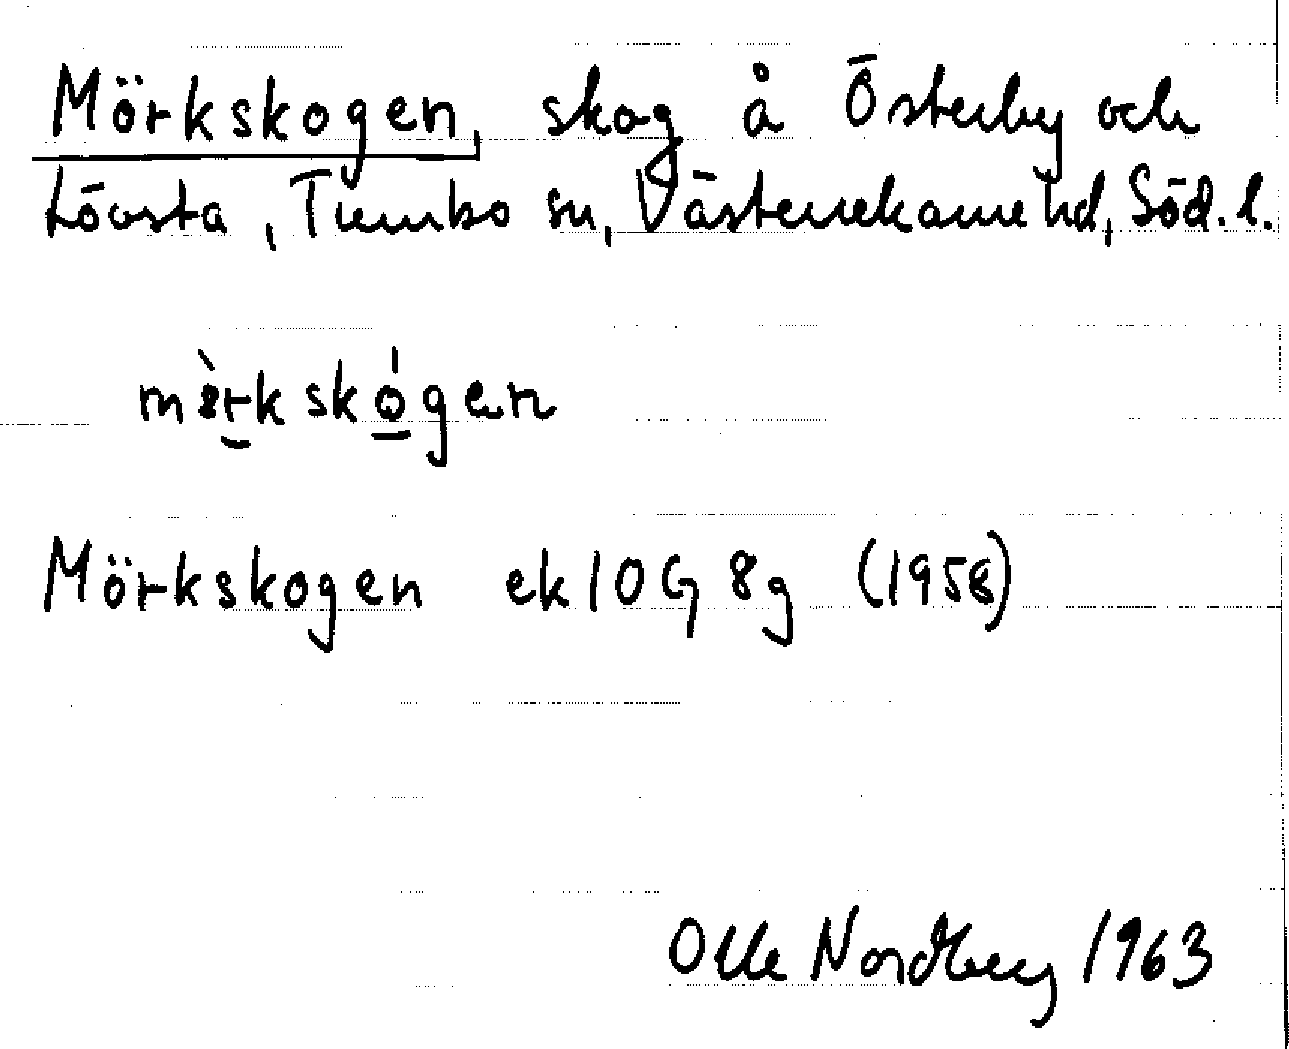 Mörkskogen, skog å Österby och
Lövsta, Tumbo sn, Västerrekarne hd, Söd. l.
mèrkskógen
Mörkskogen ek 10 G 8g (1958)
Olle Nordberg 1963